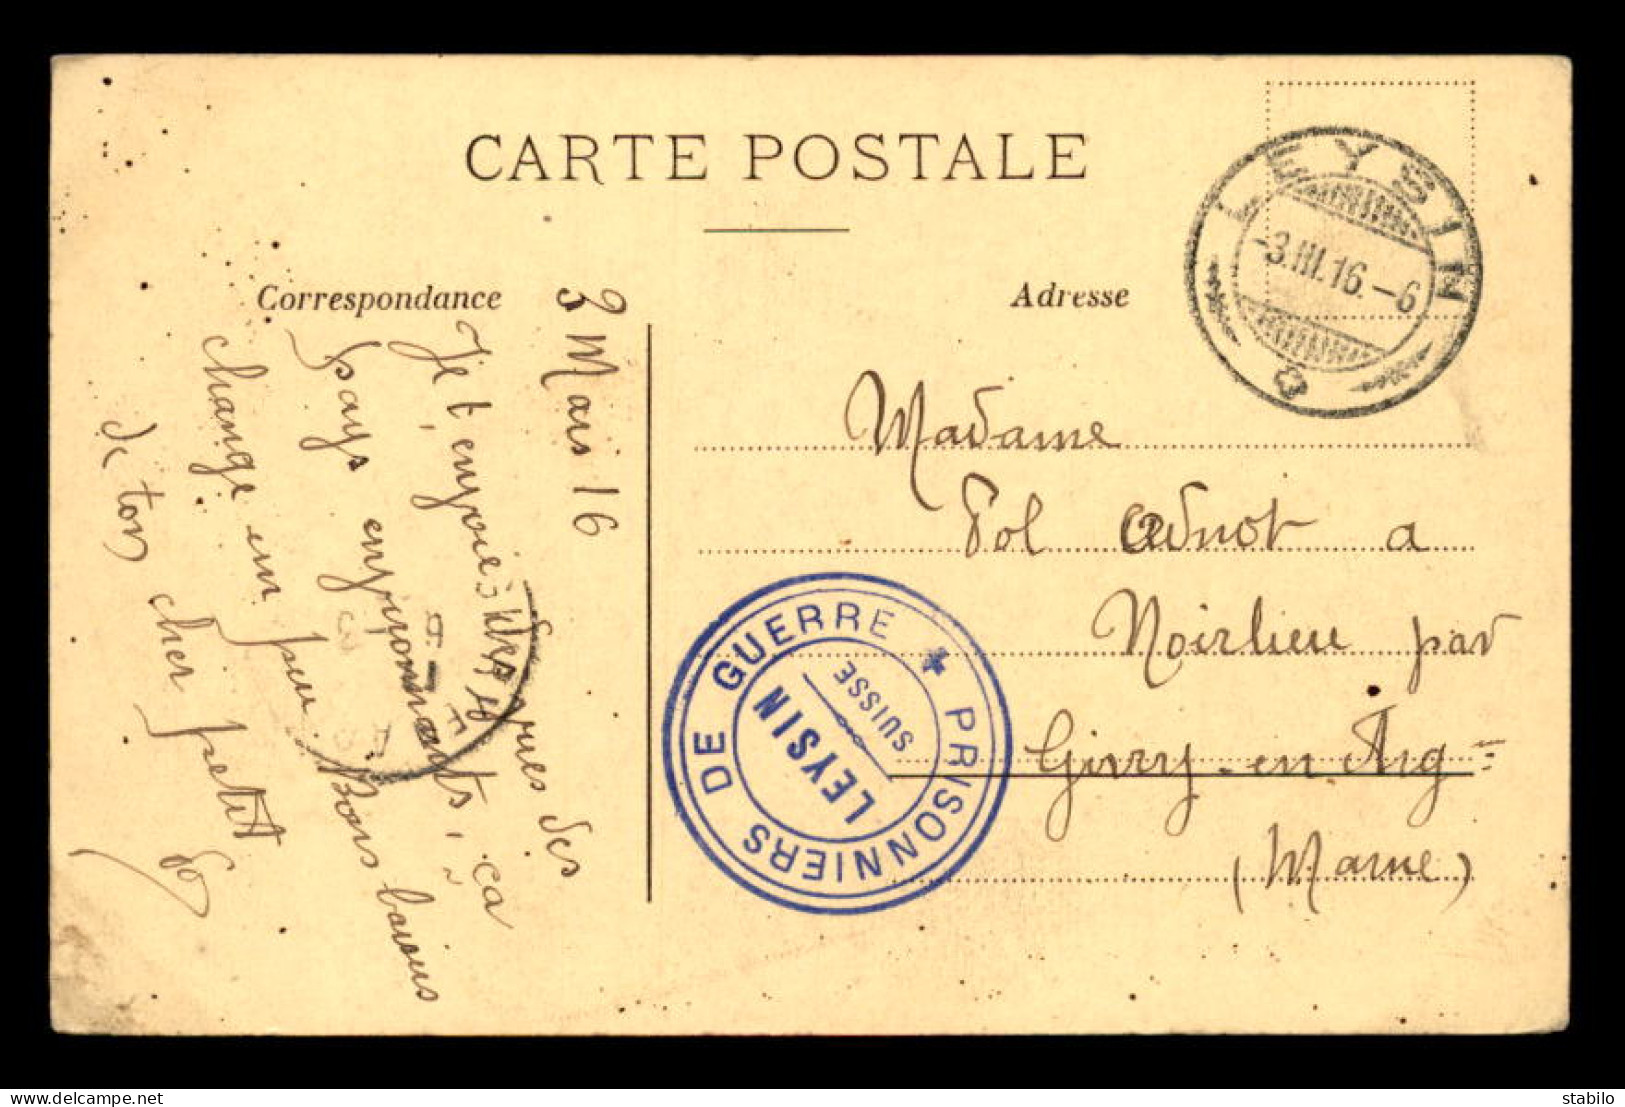 CARTE POSTALE
Correspondance
Adresse
LEYSIN
-3.III.16.-6
3 Mars 16
Je t'envoie vues des
pays environnants, ça
change un peu Bons baisers
de ton cher petit
Madame
Pol Adnot a
Noirlieu par
Givry-en-Arg=
(Marne)
PRISONNIERS DE GUERRE
LEYSIN
SUISSE
delcampe.net
stabilo